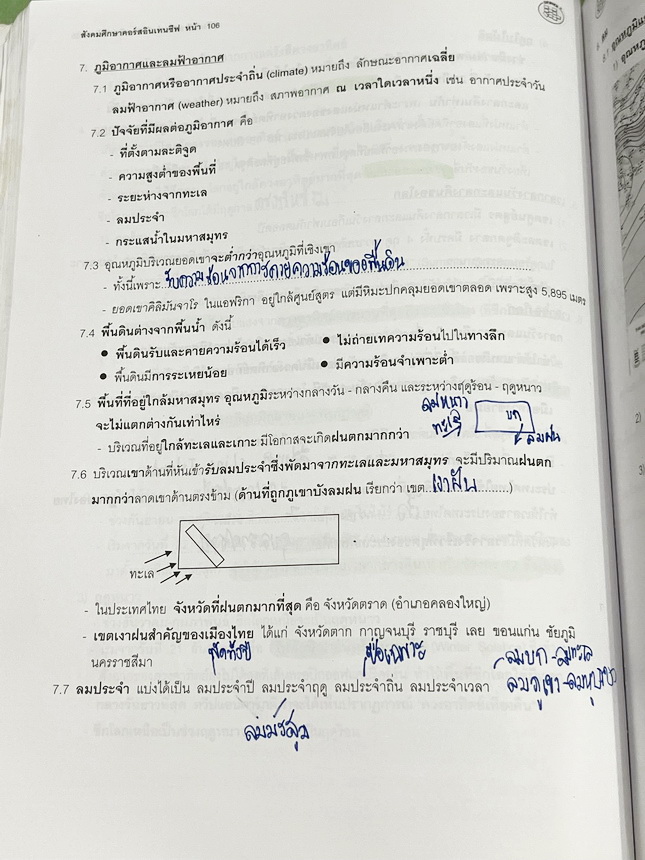 สังคมศึกษาคอร์สอินเทนซีฟ หน้า 106
7. ภูมิอากาศและลมฟ้าอากาศ
7.1 ภูมิอากาศหรืออากาศประจำถิ่น (climate) หมายถึง ลักษณะอากาศเฉลี่ย
ลมฟ้าอากาศ (weather) หมายถึง สภาพอากาศ ณ เวลาใดเวลาหนึ่ง เช่น อากาศประจำวัน
7.2 ปัจจัยที่มีผลต่อภูมิอากาศ คือ
- ที่ตั้งตามละติจูด
- ความสูงต่ำของพื้นที่
- ระยะห่างจากทะเล
- ลมประจำ
- กระแสน้ำในมหาสมุทร
7.3 อุณหภูมิบริเวณยอดเขาจะต่ำกว่าอุณหภูมิที่เชิงเขา
- ทั้งนี้เพราะ รับความร้อนจากการคายความร้อนของพื้นดิน
- ยอดเขาคิลิมันจาโร ในแอฟริกา อยู่ใกล้ศูนย์สูตร แต่มีหิมะปกคลุมยอดเขาตลอด เพราะสูง 5,895 เมตร
7.4 พื้นดินต่างจากพื้นน้ำ ดังนี้
● พื้นดินรับและคายความร้อนได้เร็ว ● ไม่ถ่ายเทความร้อนไปในทางลึก
● พื้นดินมีการระเหยน้อย ● มีความร้อนจำเพาะต่ำ
7.5 พื้นที่ที่อยู่ใกล้มหาสมุทร อุณหภูมิระหว่างกลางวัน - กลางคืน และระหว่างฤดูร้อน - ฤดูหนาว
จะไม่แตกต่างกันเท่าไหร่ ลมหนาว
ทะเล บก
ลมฝน
- บริเวณที่อยู่ใกล้ทะเลและเกาะ มีโอกาสจะเกิดฝนตกมากกว่า
7.6 บริเวณเขาด้านที่หันเข้ารับลมประจำซึ่งพัดมาจากทะเลและมหาสมุทร จะมีปริมาณฝนตก
มากกว่าลาดเขาด้านตรงข้าม (ด้านที่ถูกภูเขาบังลมฝน เรียกว่า เขต เงาฝน )
ทะเล
- ในประเทศไทย จังหวัดที่ฝนตกมากที่สุด คือ จังหวัดตราด (อำเภอคลองใหญ่)
- เขตเงาฝนสำคัญของเมืองไทย ได้แก่ จังหวัดตาก กาญจนบุรี ราชบุรี เลย ขอนแก่น ชัยภูมิ
นครราชสีมา พัดทั้งปี ชื่อเฉพาะ ลมบก-ลมทะเล
7.7 ลมประจำ แบ่งได้เป็น ลมประจำปี ลมประจำฤดู ลมประจำถิ่น ลมประจำเวลา ลมภูเขา-ลมหุบเขา
ลมมรสุม